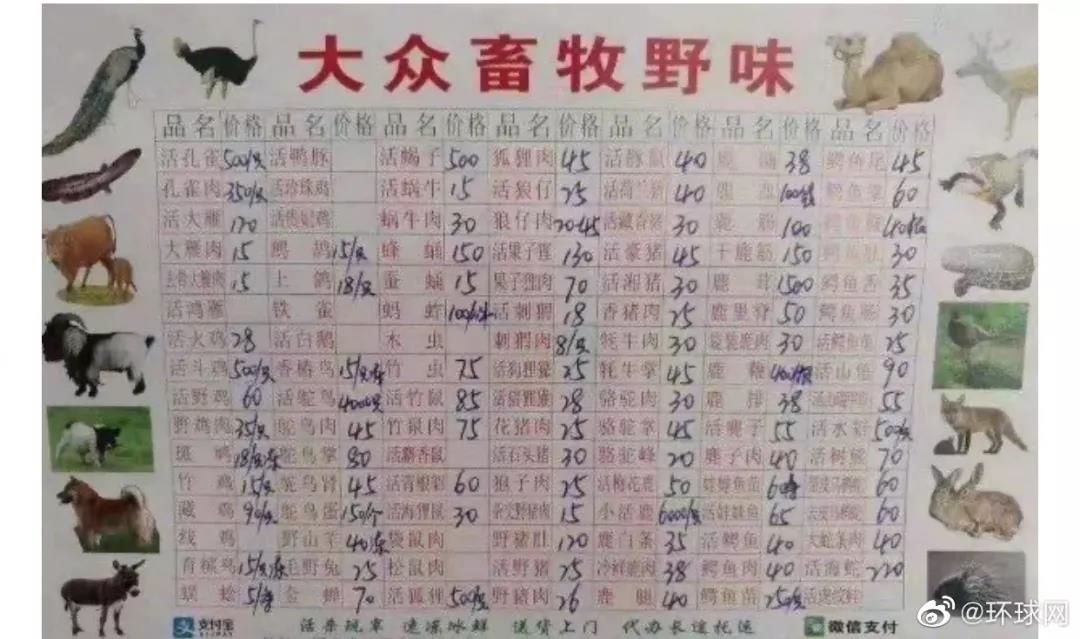 大众畜牧野味
品名 价格 品名 价格 品名 价格 品名 价格 品名 价格 品名 价格 品名 价格
活孔雀 500/只 活鸭豚 活蝎子 500 狐狸肉 45 活豚鼠 40 38 鳄鱼尾 45
孔雀肉 350/只 活珍珠鸡 活蜗牛 15 活狼仔 25 活荷兰猪 40 鳄鱼掌 60
活大雁 120 活贵妃鸡 蜗牛肉 30 狼仔肉 2045 活藏香猪 30 鹿筋 100
大雁肉 15 鹧鸪 15/只 蜂蛹 150 活果子狸 130 活豪猪 45 干鹿筋 150 鳄鱼肚 30
15 土鸽 18/只 蚕蛹 15 果子狸肉 70 活湘猪 30 鹿茸 1500 鳄鱼舌 35
活鸿雁 铁雀 蚂蚱 活刺猬 18 香猪肉 25 鹿里脊 50 鳄鱼肠 30
活火鸡 28 活白鹅 木虫 刺猬肉 8/只 牦牛肉 30 鹿肉 30 活鳄鱼 25
活斗鸡 500/只 香椿鸟 竹虫 75 活狗狸獾 25 牦牛掌 45 鹿鞭 90
活野鸡 60 活鸵鸟 4000只 活竹鼠 85 活猪狸獾 28 骆驼肉 30 鹿排 38 55
野鸡肉 35/只 鸵鸟肉 45 竹鼠肉 75 花猪肉 25 骆驼掌 45 活麂子 55
斑鸠 鸵鸟掌 80 活麝香鼠 活石头猪 30 骆驼峰 20 麂子肉 40 活树熊 70
竹鸡 15/只 鸵鸟肾 45 60 狍子肉 25 活梅花鹿 50 娃娃鱼苗 60
藏鸡 鸵鸟蛋 150/个 活海狸鼠 30 杂交野猪肉 15 小活鹿 6000/只 活娃娃鱼 65 60
线鸡 野山羊 袋鼠肉 野猪肚 120 鹿白条 35 活鳄鱼 40 大蛇条肉 40
毛野兔 25 松鼠肉 活野猪 25 冷鲜鹿肉 38 鳄鱼肉 40 活海蛇 220
蜈蚣 金蝉 70 活狐狸 500/只 野猪肉 26 鹿腿 40 鳄鱼苗
支付宝
ALIPAY
活杀现宰 速冻冰鲜 送货上门 代办长途托运
微信支付
@环球网